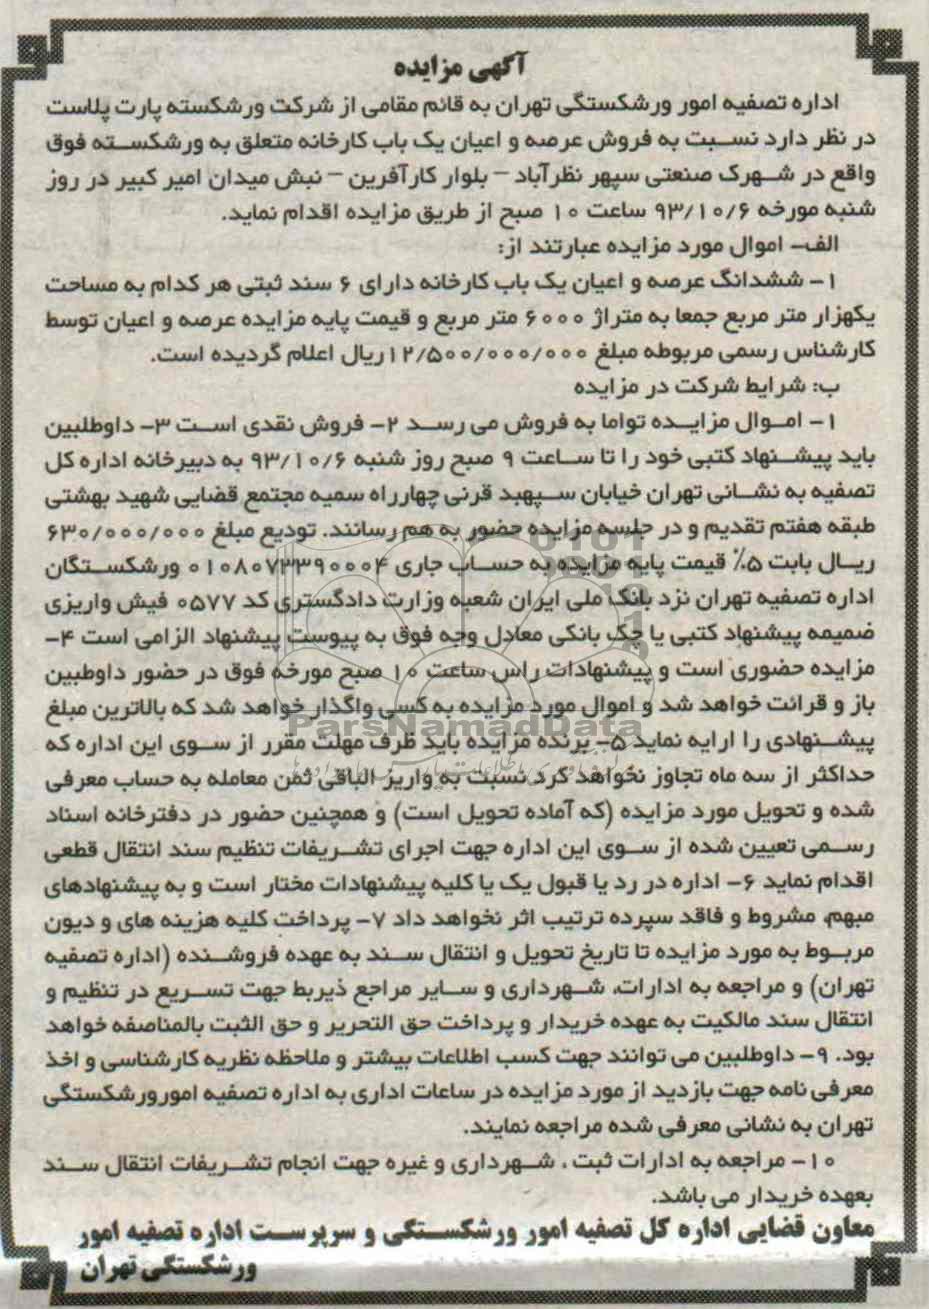 آگهی مزایده
اداره تصفیه امور ورشکستگی تهران به قائم مقامی از شرکت ورشکسته پارت پلاست
در نظر دارد نسبت به فروش عرصه و اعیان یک باب کارخانه متعلق به ورشکسته فوق
واقع در شهرک صنعتی سپهر نظرآباد – بلوار کارآفرین – نبش میدان امیر کبیر در روز
شنبه مورخه ۹۳/۱۰/۶ ساعت ۱۰ صبح از طریق مزایده اقدام نماید.
الف- اموال مورد مزایده عبارتند از:
۱- ششدانگ عرصه و اعیان یک باب کارخانه دارای ۶ سند ثبتی هر کدام به مساحت
یکهزار متر مربع جمعا به متراژ ۶۰۰۰ متر مربع و قیمت پایه مزایده عرصه و اعیان توسط
کارشناس رسمی مربوطه مبلغ ۱۲/۵۰۰/۰۰۰/۰۰۰ریال اعلام گردیده است.
ب: شرایط شرکت در مزایده
۱- اموال مزایده تواما به فروش می رسد ۲- فروش نقدی است ۳- داوطلبین
باید پیشنهاد کتبی خود را تا ساعت ۹ صبح روز شنبه ۹۳/۱۰/۶ به دبیرخانه اداره کل
تصفیه به نشانی تهران خیابان سپهبد قرنی چهارراه سمیه مجتمع قضایی شهید بهشتی
طبقه هفتم تقدیم و در جلسه مزایده حضور به هم رسانند. تودیع مبلغ ۶۳۰/۰۰۰/۰۰۰
ریال بابت ۵٪ قیمت پایه مزایده به حساب جاری ۰۱۰۸۰۷۳۳۹۰۰۰۴ ورشکستگان
اداره تصفیه تهران نزد بانک ملی ایران شعبه وزارت دادگستری کد ۰۵۷۷ فیش واریزی
ضمیمه پیشنهاد کتبی یا چک بانکی معادل وجه فوق به پیوست پیشنهاد الزامی است ۴-
مزایده حضوری است و پیشنهادات راس ساعت ۱۰ صبح مورخه فوق در حضور داوطبین
باز و قرائت خواهد شد و اموال مورد مزایده به کسی واگذار خواهد شد که بالاترین مبلغ
ParsNamadData
پیشنهادی را ارایه نماید ۵- برنده مزایده باید ظرف مهلت مقرر از سوی این اداره که
حداکثر از سه ماه تجاوز نخواهد کرد نسبت به واریز الباقی ثمن معامله به حساب معرفی
شده و تحویل مورد مزایده (که آماده تحویل است) و همچنین حضور در دفترخانه اسناد
رسمی تعیین شده از سوی این اداره جهت اجرای تشریفات تنظیم سند انتقال قطعی
اقدام نماید ۶- اداره در رد یا قبول یک یا کلیه پیشنهادات مختار است و به پیشنهادهای
مبهم، مشروط و فاقد سپرده ترتیب اثر نخواهد داد ۷- پرداخت کلیه هزینه های و دیون
مربوط به مورد مزایده تا تاریخ تحویل و انتقال سند به عهده فروشنده (اداره تصفیه
تهران) و مراجعه به ادارات، شهرداری و سایر مراجع ذیربط جهت تسریع در تنظیم و
انتقال سند مالکیت به عهده خریدار و پرداخت حق التحریر و حق الثبت بالمناصفه خواهد
بود. ۹- داوطلبین می توانند جهت کسب اطلاعات بیشتر و ملاحظه نظریه کارشناسی و اخذ
معرفی نامه جهت بازدید از مورد مزایده در ساعات اداری به اداره تصفیه امورورشکستگی
تهران به نشانی معرفی شده مراجعه نمایند.
۱۰- مراجعه به ادارات ثبت ، شهرداری و غیره جهت انجام تشریفات انتقال سند
بعهده خریدار می باشد.
معاون قضایی اداره کل تصفیه امور ورشکستگی و سرپرست اداره تصفیه امور
ورشکستگی تهران